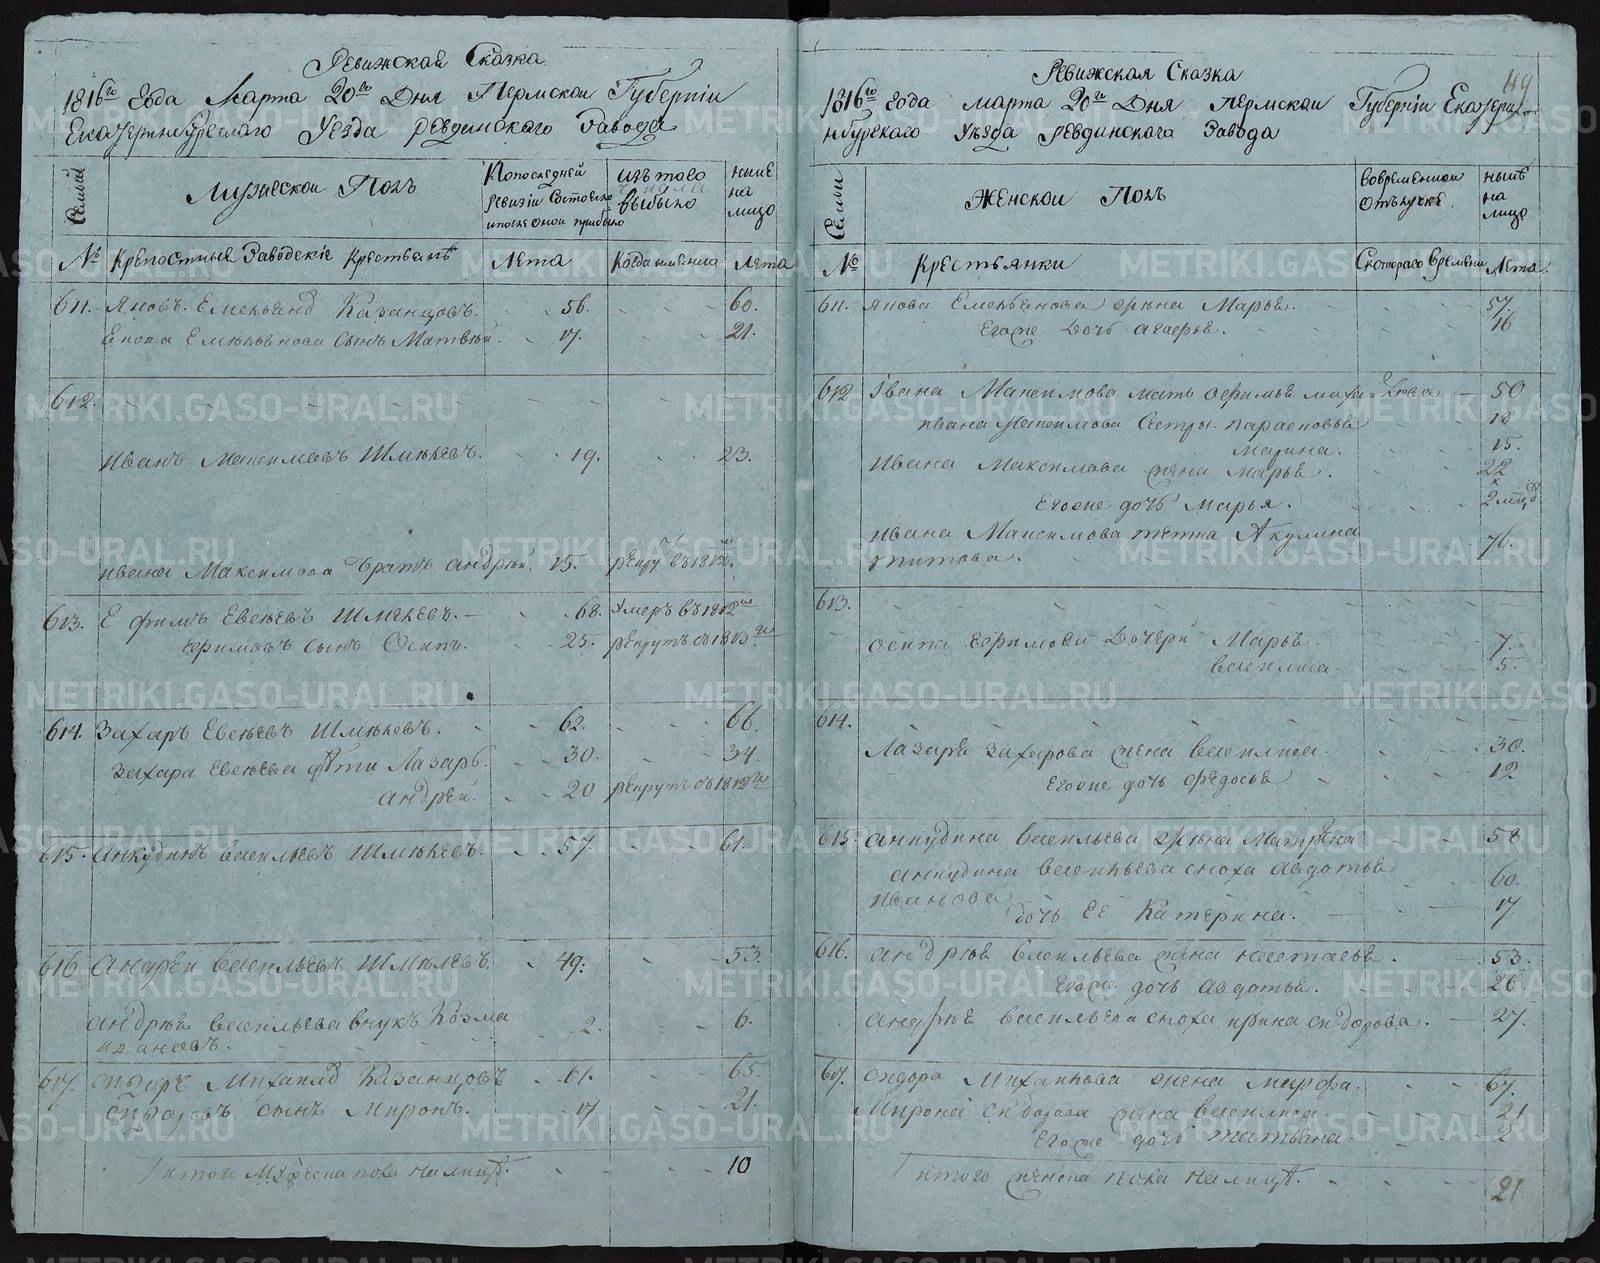 Ревижская Сказка
1816го Года Марта 20го Дня Пермской Губернии
Екатеринбургскаго Уезда Ревдинскаго Завода
Семьи
Мужеской Полъ
Попоследней ревизіи состояло ипосле оной прибыло
изъ того числа выбыло
ныне на лицо
№ Крепостные Заводскіе Крестьянѣ
Лета
Когда имянно
Лета
611. Яковъ Емельянъ Казанцовъ. 56. 60.
Емельянова сынъ Матвѣй. 17. 21.
612.
Иванъ Максимовъ Шмѣлевъ. 19. 23.
Ивана Максимова братъ Андрѣй. 15. рекру въ 1812.
613. Ефимъ Евсѣевъ Шмелевъ. 68. Умеръ въ 1812
Ефимовъ сынъ Осипъ. 25. рекрутъ въ 1813
614. Захаръ Евсѣевъ Шмѣлевъ. 62. 66.
Захара Евсѣева дѣти Лазарь. 30. 34.
Андрей. 20 рекрутъ въ 1812
615. Анкудинъ Васильевъ Шмѣлевъ. 57. 61.
616 Андрей Васильевъ Шмѣлевъ. 49. 53.
Андрѣя Васильева внукъ Козма 2. 6.
Ивановъ.
617. Сидоръ Михаилъ Казанцовъ 61. 65.
Сидоровъ сынъ Миронъ. 17 21.
итого Мужеска пола на лицѣ. 10
49
Ревижская Сказка
1816го Года марта 20го Дня Пермской Губерніи Екатери-
нбурскаго Уѣзда Ревдинскаго Завода
Семьи
Женской Полъ
вовременной отлучке
нынѣ на лицо
№
Крестьянки
Скотораго времени
Лета
611. Якова Емельянова жена Марья. 57.
Егоже дочь Агафья. 16
612 Ивана Максимова мать Афимья 50
Ивана Максимова сестры Парасковья 18
Марина. 15.
Ивана Максимова жена Марья. 22
Егоже дочь Марья. 2 мцъ
Ивана Максимова тетка Акулина 76.
Титова.
613.
Осипа Ефимова дочери Марья 7.
Василиса. 5.
614.
Лазаря Захарова жена Василиса. 30.
Егоже дочь Федосья 12
615. Анкудина Васильева жена Матрена 58
Анкудина Васильева сноха Авдотья 60.
Иванова
дочь Её Катерина. 17
616. Андрѣя Васильева жена Настасья. 53.
Егоже дочь Авдотья. 26.
Андрѣя Васильева сноха Ирина Сидорова. 27.
617. Сидора Михайлова жена Марфа. 67.
Мирона Сидорова жена Василиса. 21
Егоже дочь Татьяна. 2
итого женска пола на лицѣ. 21
METRIKI.GASO-URAL.RU